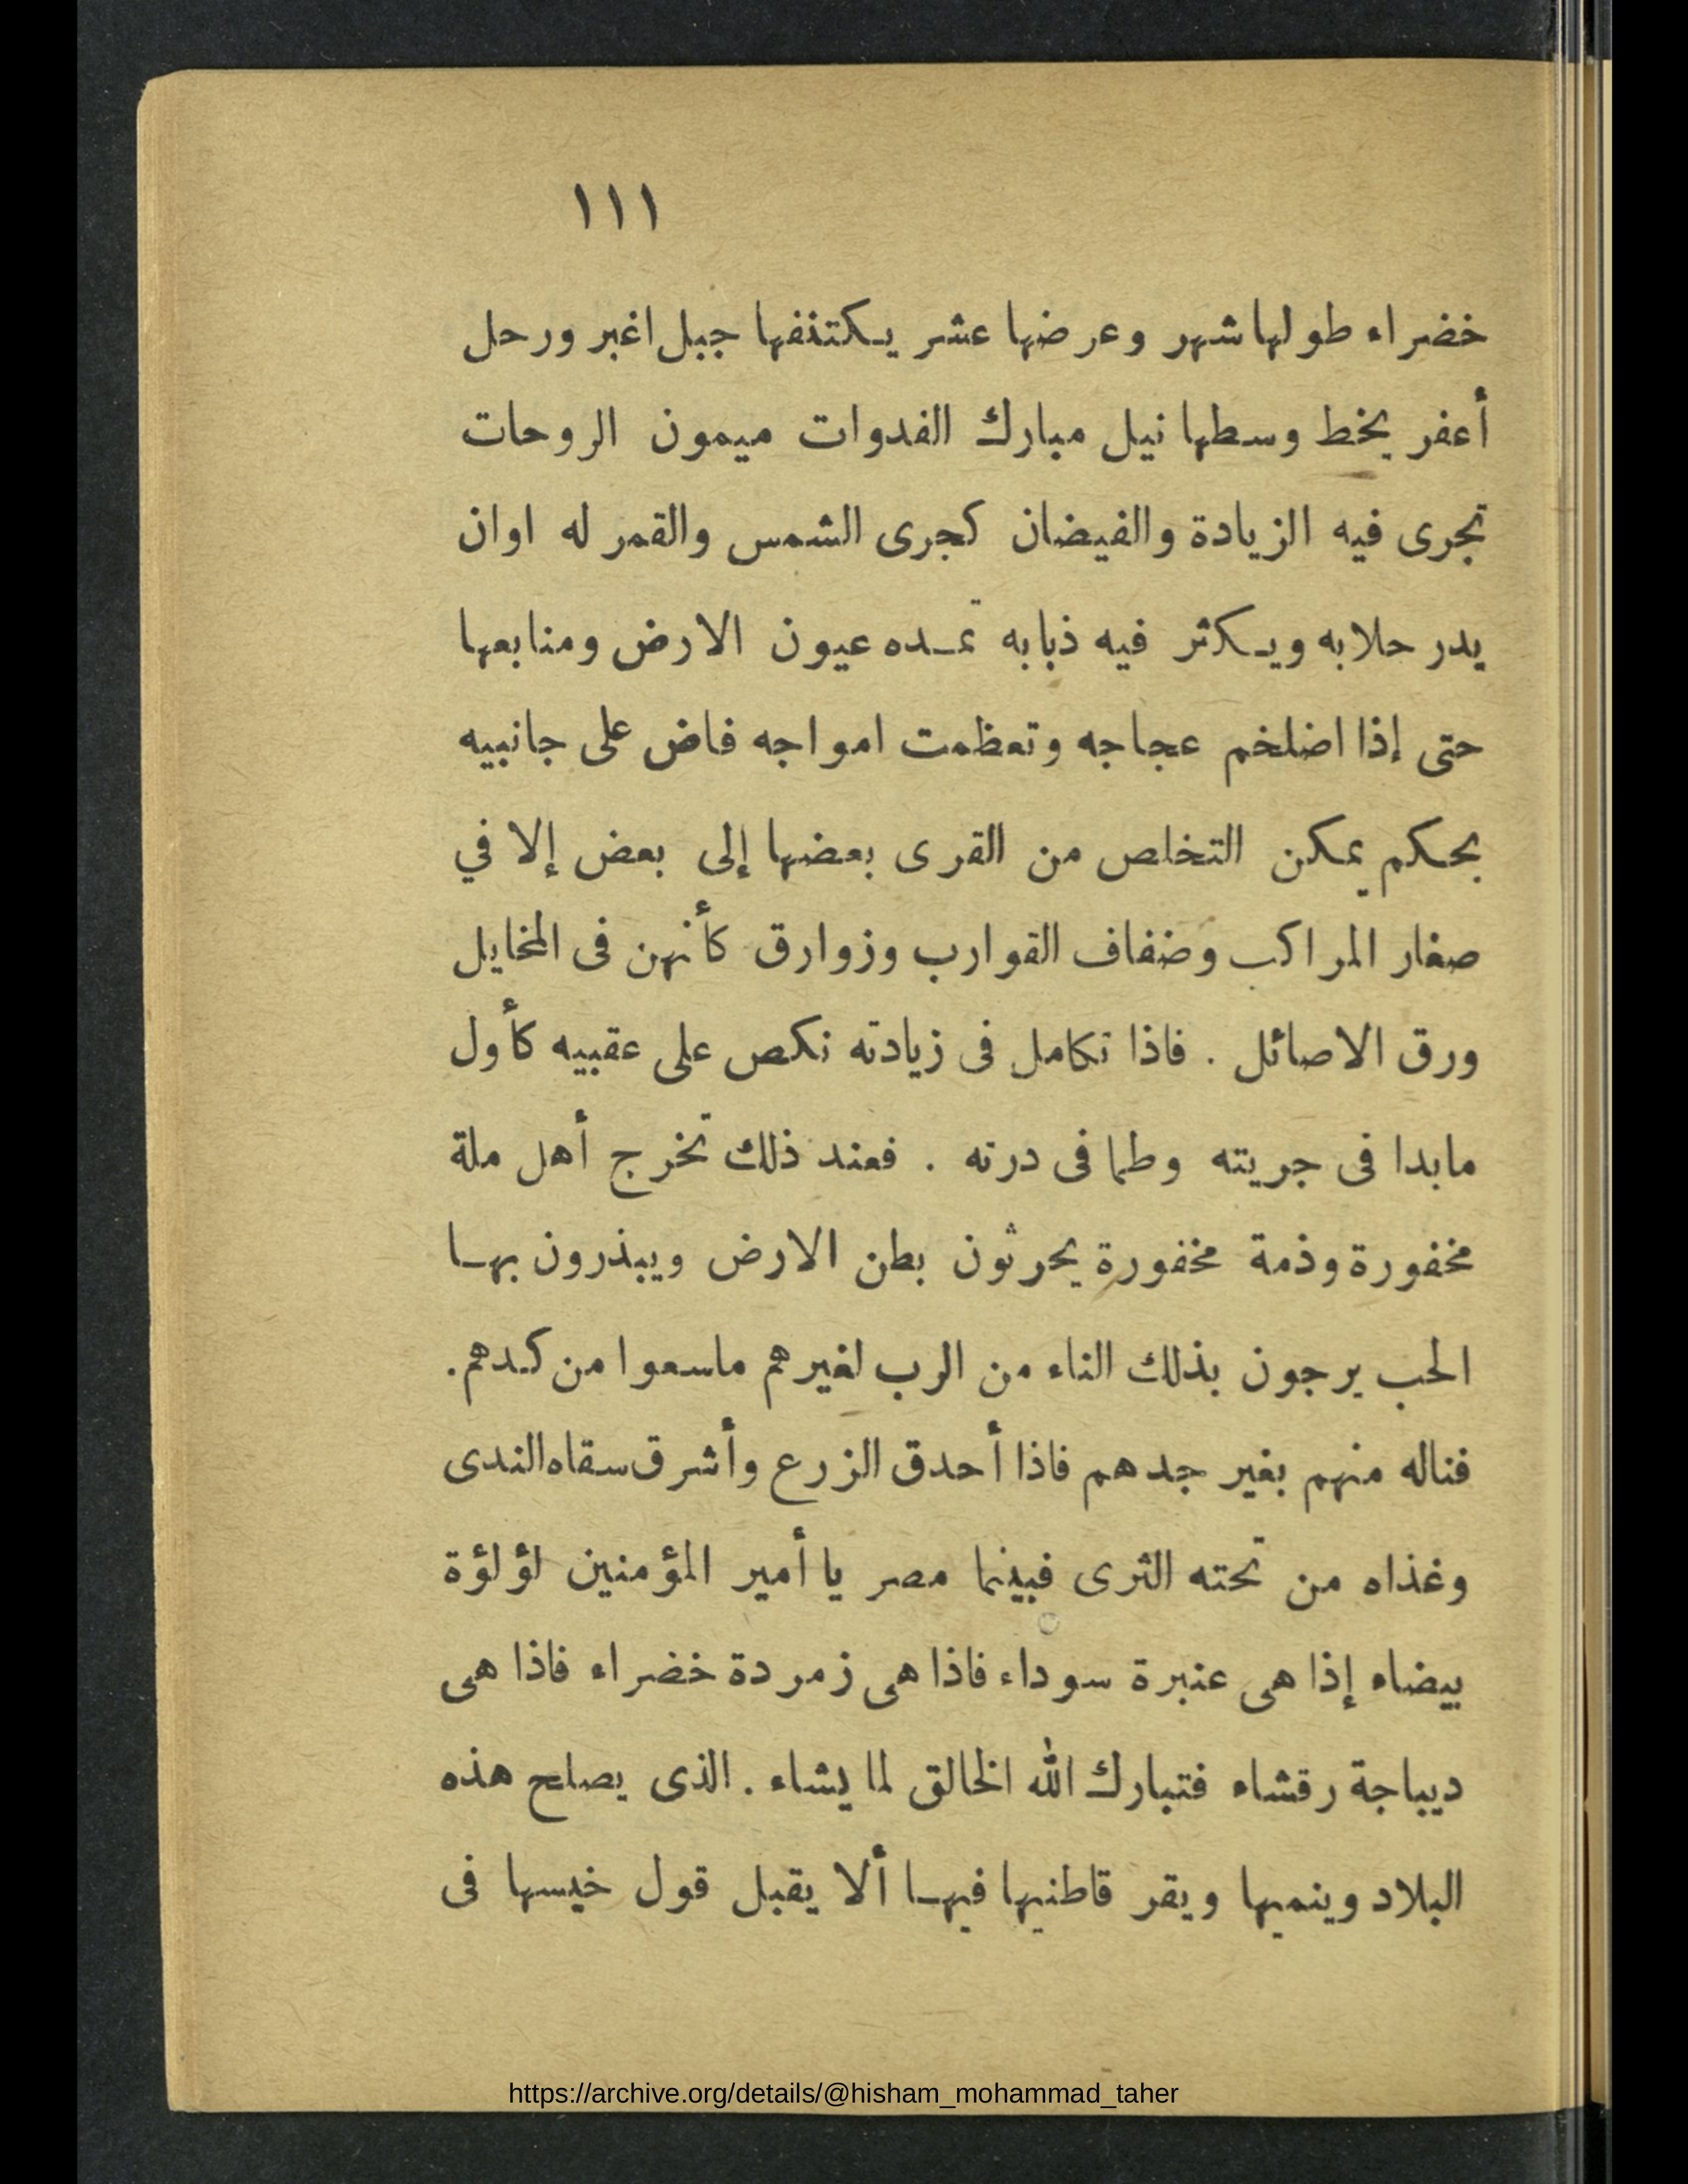 ١١١
خضراء طولها شهر وعرضها عشر يكتنفها جبل اغبر ورحل
أعفر يخط وسطها نيل مبارك الغدوات ميمون الروحات
تجرى فيه الزيادة والفيضان كجرى الشمس والقمر له اوان
يدر حلابه ويكثر فيه ذبابه تمده عيون الارض ومنابعها
حتى إذا اضلخم عجاجه وتعظمت امواجه فاض على جانبيه
بحكم يمكن التخلص من القرى بعضها إلى بعض إلا في
صغار المراكب وضفاف القوارب وزوارق كأنهن فى المخايل
ورق الاصائل . فاذا تكامل فى زيادته نكص على عقبيه كأول
مابدا فى جريته وطما فى درته . فعند ذلك تخرج أهل ملة
مخفورة وذمة مخفورة يحرثون بطن الارض ويبذرون بها
الحب يرجون بذلك الناء من الرب لغيرهم ماسعوا من كدهم.
فناله منهم بغير جدهم فاذا أحدق الزرع وأشرق سقاه الندى
وغذاه من تحته الثرى فبينما مصر يا أمير المؤمنين لؤلؤة
بيضاء إذا هى عنبرة سوداء فاذا هى زمردة خضراء فاذا هى
ديباجة رقشاء فتبارك الله الخالق لما يشاء . الذى يصلح هذه
البلاد وينميها ويقر قاطنيها فيها ألا يقبل قول خيسها فى
https://archive.org/details/@hisham_mohammad_taher